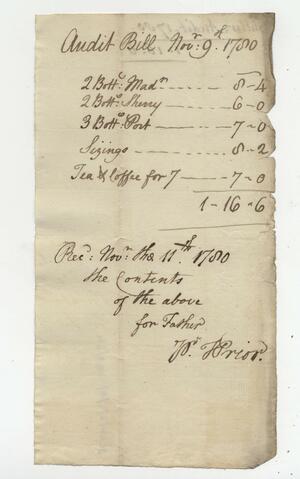 Audit Bill Novr. 9th. 1780
2 Bottc. Madn — 8-4
2 Botto. Sherry — 6-0
3 Botto. Port — 7-0
Sizings — 8-2
Tea & Coffee for 7 — 7-0
1-16-6
Recd: Novr. the 11th. 1780
the Contents
of the above
for Father
Prior.